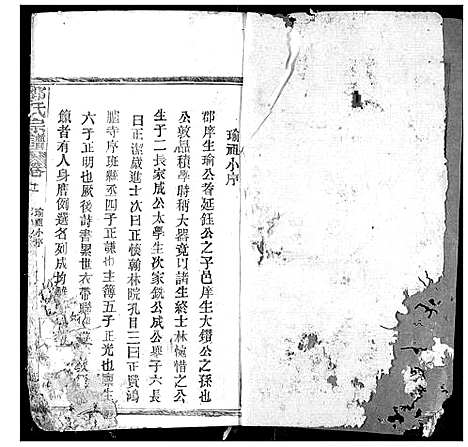 瑜祖小序
郡庠生瑜公者延鈺公之子邑庠生大鑽公之孫也
公敦品積學時稱大器竟以諸生終士林惋惜之公
生子二長家成公太學生次家銑公成公舉子六長
曰正潔歲進士次曰正懷翰林院孔目三曰正賢鴻
臚寺序班級丞四子正謙也主簿五子正光也
六子正明也厥後詩書累世衣帶聯
饋者有人身膺倒選名列成均
氏宗譜
瑜祖小序